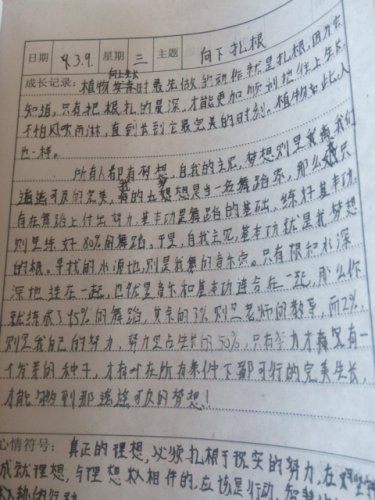 日期 4.3.9. 星期 三 主题 向下扎根
向上生长
成长记录:植物 时最先做的动作就是扎根,因为它
知道,只有把根扎的最深,才能更加顺利地往上生长,
不怕风吹雨淋,直到长到它最完美的时刻。植物如此,人
也一样。
所有人都有梦想,自我的主见,梦想则是 我们
遥遥可及的完美,我的 梦想是当一名舞蹈家,那么 只
有在舞蹈上付出努力,基本功是舞蹈的基础,练好基本功
则是练好80%的舞蹈。于是,自我主见,基本功就是我梦想
的根。寻找的水源地,则是我舞的音乐 。只有根和水深
深地连在一起,也就是音乐和基本功连合在一起,那么你
就练成了95%的舞蹈,其余的3%则是老师的教导,而2%
则是我自己的努力,努力是占生长的50%,只有努力才 有一
个发芽的种子,才有 在所有条件下都可行的完美生长,
才能够 到那遥遥可及的梦想!
心情符号:真正的理想,必须扎根于现实的努力,在
成就理想,与理想 相伴的,应该是行动,